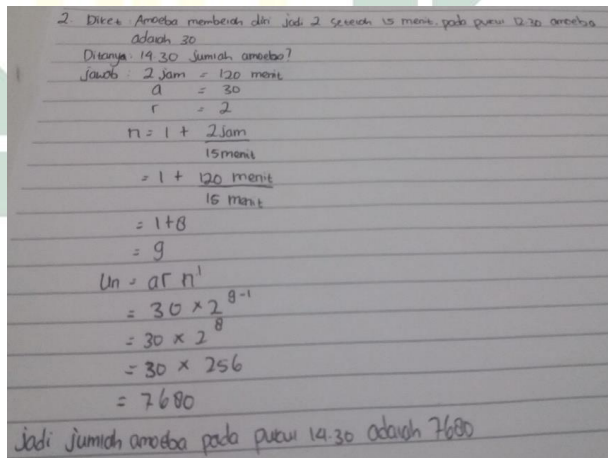 2. Diket : Amoeba membelah diri jadi 2 setelah 15 menit. pada pukul 12.30 amoeba
adalah 30
Ditanya : 14.30 Jumlah amoeba?
Jawab : 2 jam = 120 menit
a = 30
r = 2
n = 1 + 2 jam
15 menit
= 1 + 120 menit
15 menit
= 1+8
= 9
Un = ar n¹
= 30 × 2⁹⁻¹
= 30 × 2⁸
= 30 × 256
= 7680
jadi jumlah amoeba pada pukul 14.30 adalah 7680